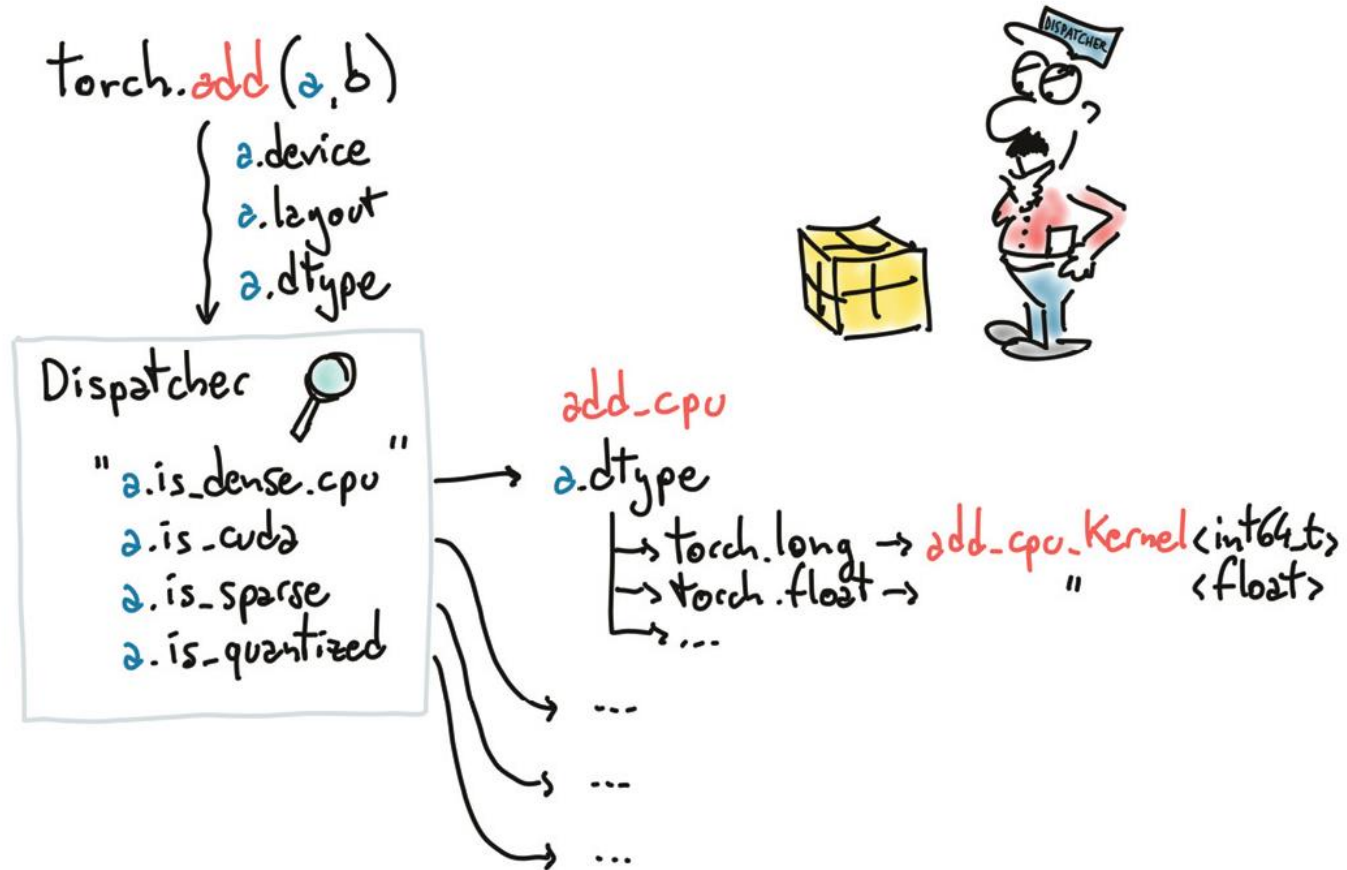 torch.add(a,b)
a.device
a.layout
a.dtype
DISPATCHER
Dispatcher
"a.is_dense.cpu"
a.is_cuda
a.is_sparse
a.is_quantized
add_cpu
a.dtype
→ torch.long → add_cpu_kernel<int64_t>
→ torch.float → " <float>
→ ...
...
...
...